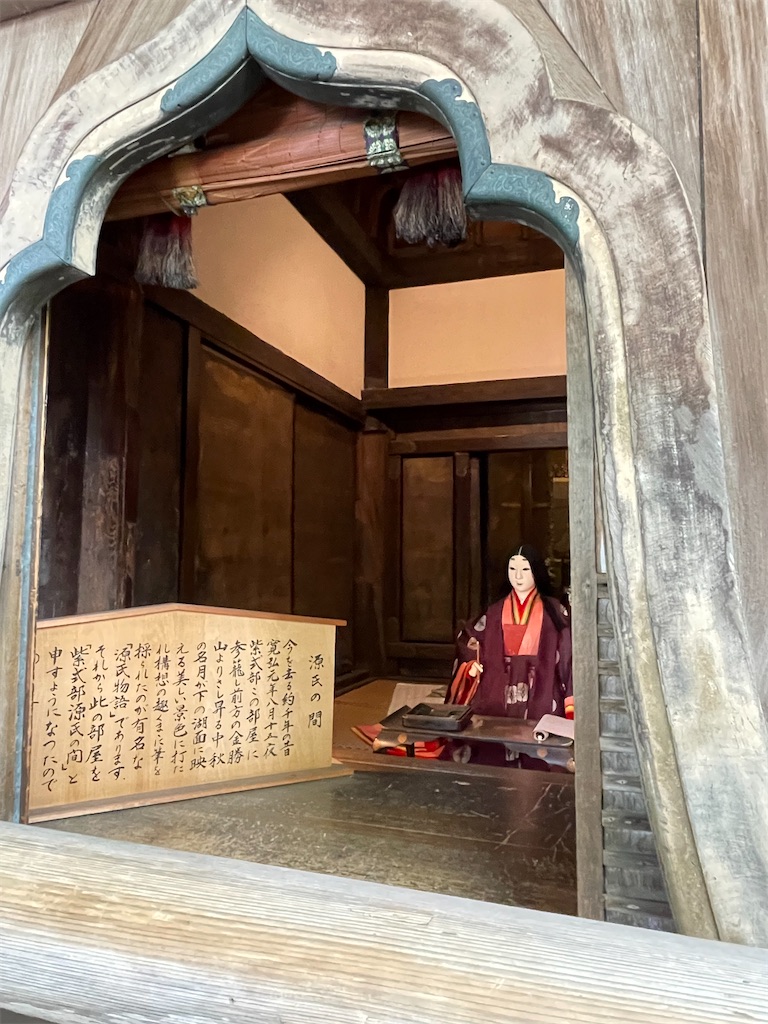 源氏の間
今を去る約千年の昔
寛弘元年八月十五夜
紫式部この部屋に
参籠し前方の金勝
山よりさし昇る中秋
の名月が下の湖面に映
える美しい景色に打た
れ構想の趣くまに筆を
採られたのが有名な
「源氏物語」であります
それから此の部屋を
「紫式部源氏の間」と
申すようになったので